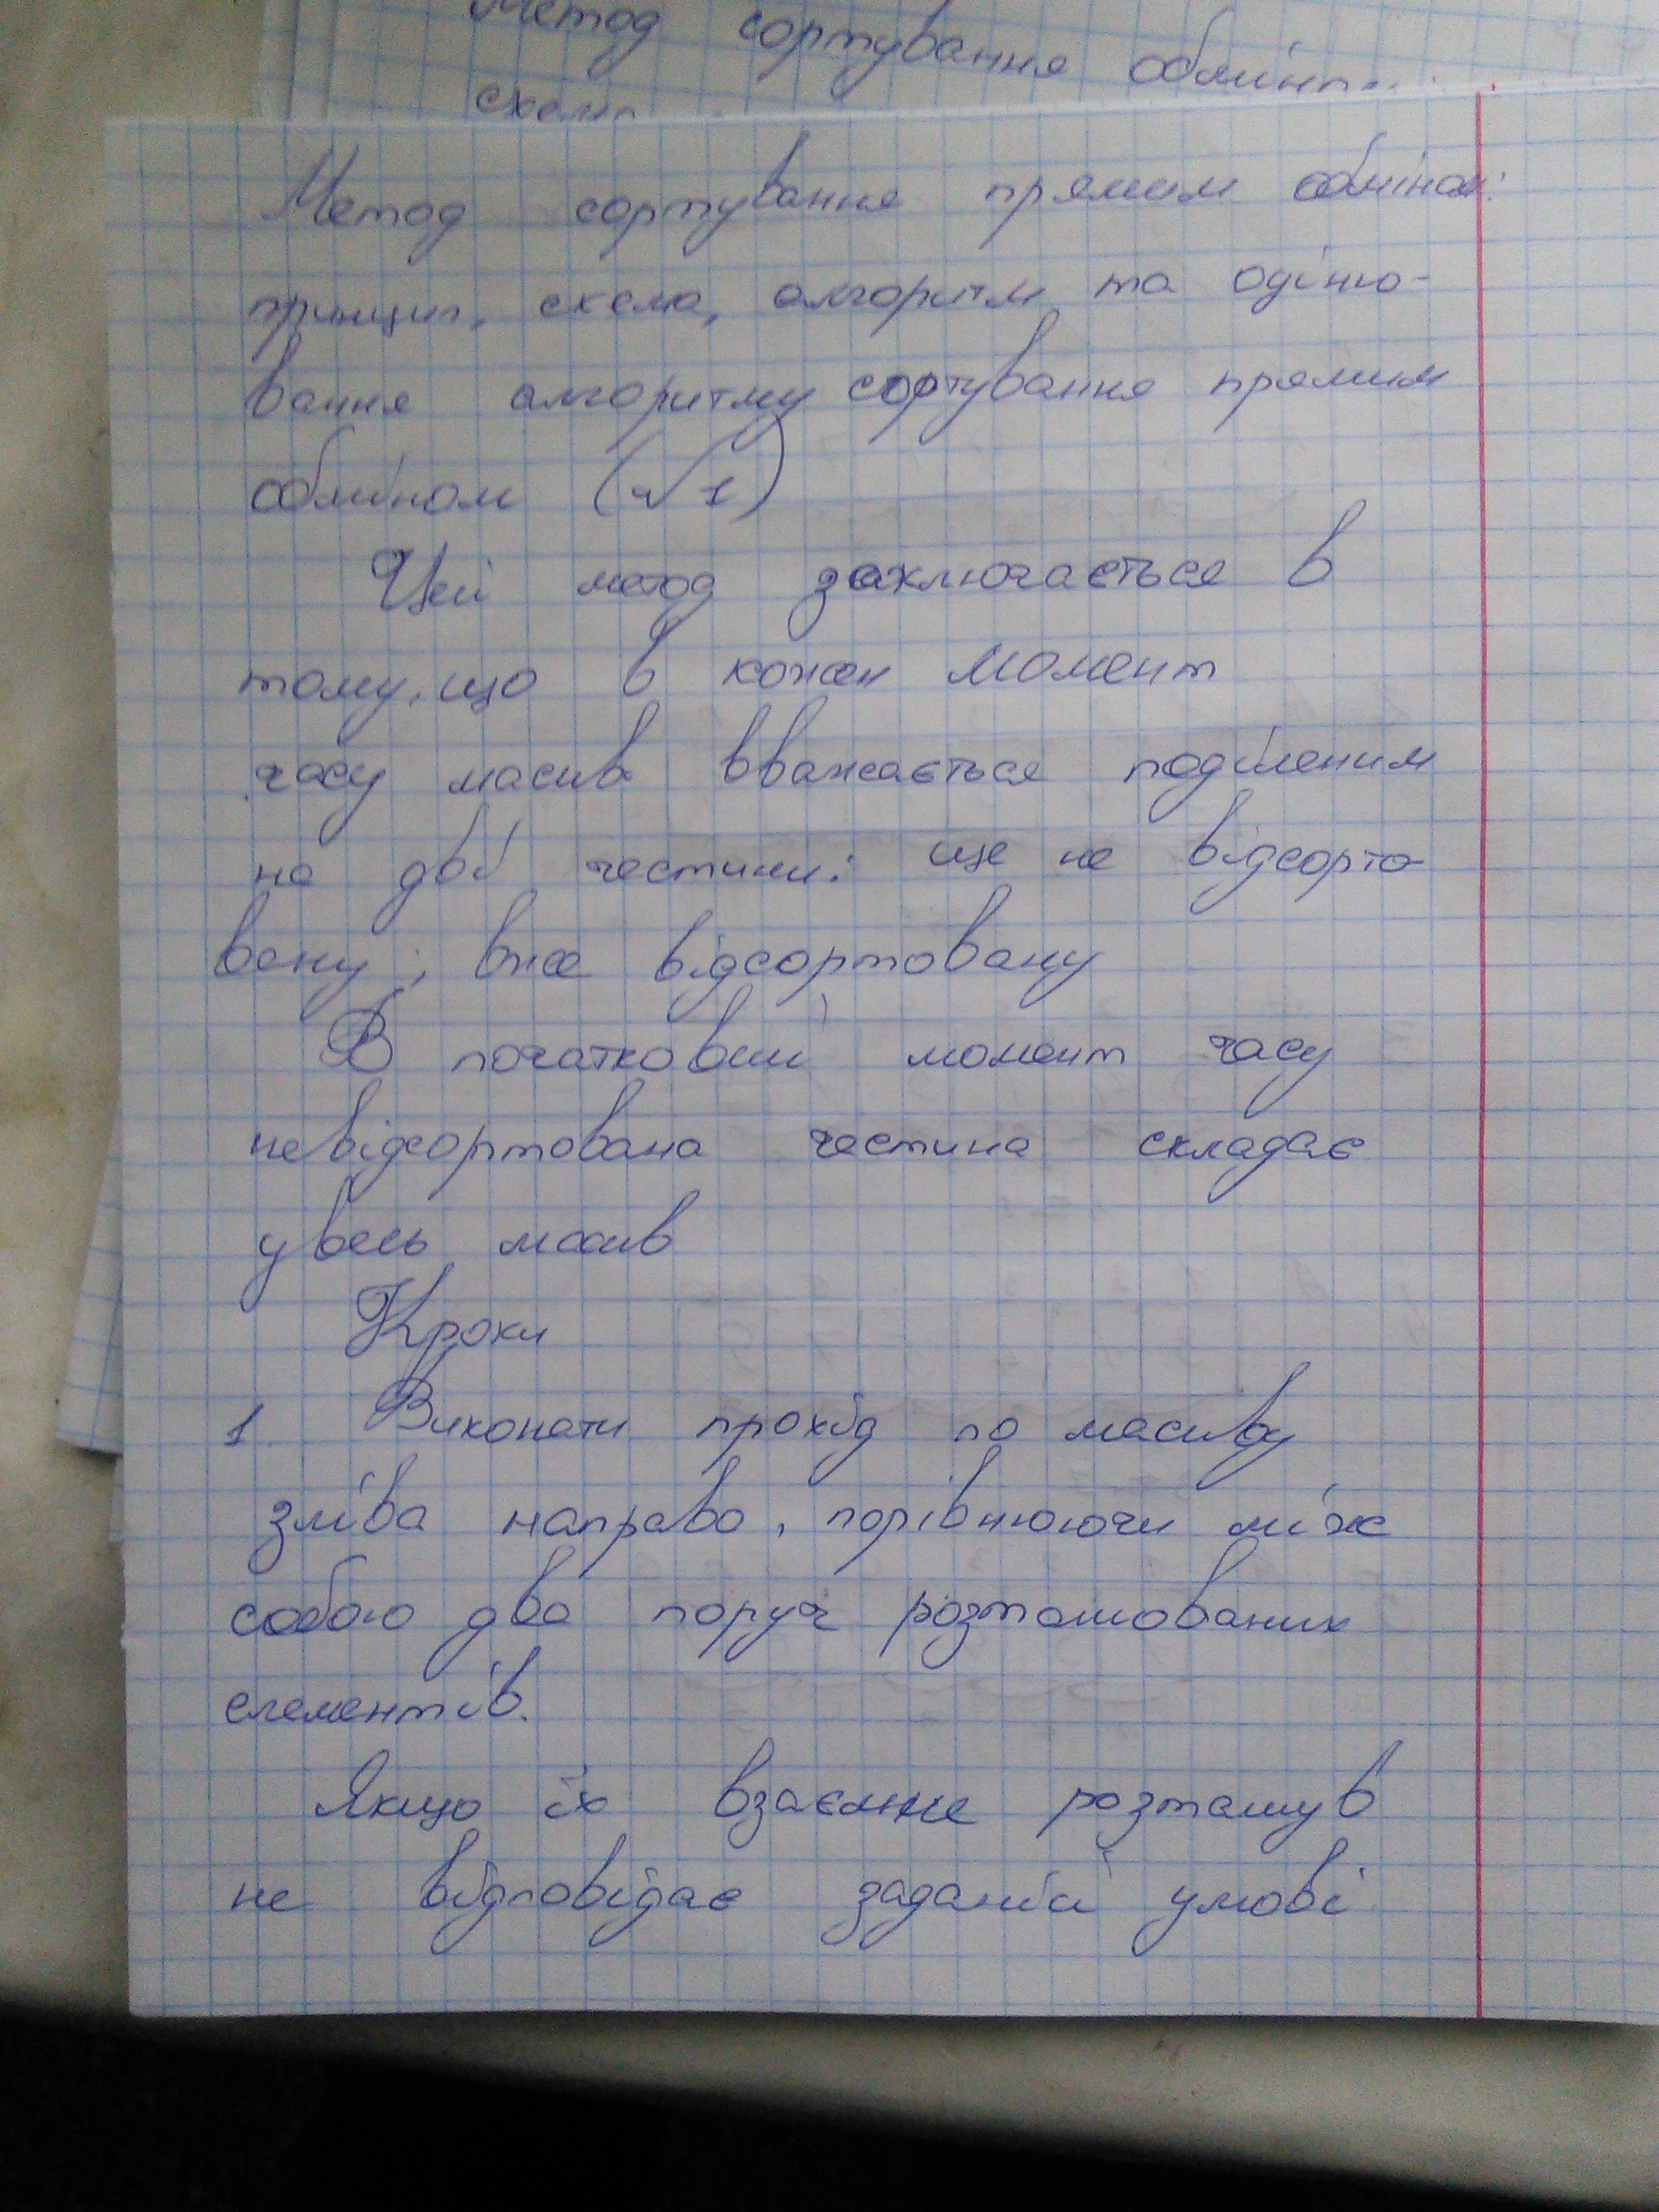 Метод сортування обмін
схем
Метод сортування прямим обміном:
принцип, схема, алгоритм та оціню-
вання алгоритму сортування прямим
обміном (√1)
Цей метод заключається в
тому, що в кожен момент
часу масив вважається поділеним
на дві частини: ще не відсорто
вану; вже відсортовану
В початковий момент часу
невідсортована частина складає
увесь масив
Кроки
1. Виконати прохід по масиву
зліва направо, порівнюючи між
собою два поруч розташованих
елементів.
Якщо їх взаємне розташув
не відповідає заданій умові